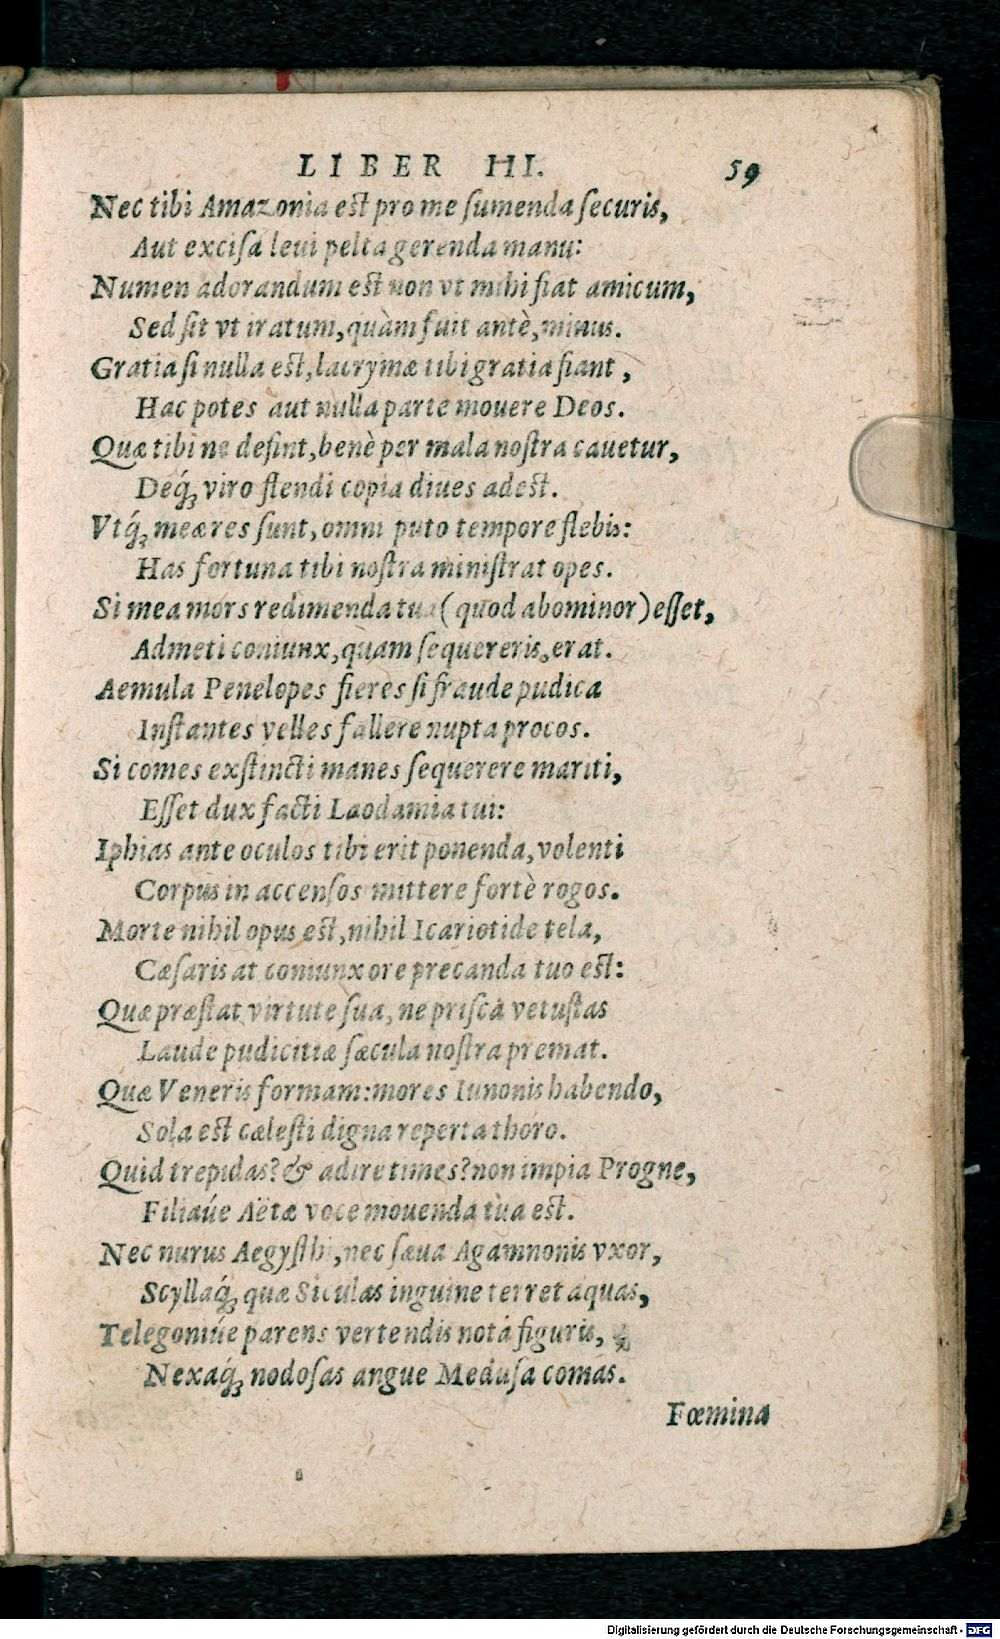 LIBER III. 59
Nec tibi Amazonia est pro me ſumenda ſecuris,
Aut exciſa leui pelta gerenda manu:
Numen adorandum est non vt mihi fiat amicum,
Sed ſit vt iratum, quàm fuit antè, minus.
Gratia ſi nulla est, lacrymæ tibi gratia fiant,
Hac potes aut nulla parte mouere Deos.
Quæ tibi ne deſint, benè per mala noſtra cauetur,
Deq́; viro flendi copia diues adest.
Vtq́; meæ res ſunt, omni puto tempore flebis:
Has fortuna tibi noſtra miniſtrat opes.
Si mea mors redimenda tua (quod abominor) eſſet,
Admeti coniunx, quam ſequereris, erat.
Aemula Penelopes fieres ſi fraude pudica
Inſtantes velles fallere nupta procos.
Si comes exſtincti manes ſequerere mariti,
Eſſet dux facti Laodamia tui:
Iphias ante oculos tibi erit ponenda, volenti
Corpus in accenſos mittere fortè rogos.
Morte nihil opus est, nihil Icariotide tela,
Cæſaris at coniunx ore precanda tuo est:
Quæ præſtat virtute ſua, ne priſca vetuſtas
Laude pudicitiæ ſæcula noſtra premat.
Quæ Veneris formam: mores Iunonis habendo,
Sola est cæleſti digna reperta thoro.
Quid trepidas? & adire times? non impia Progne,
Filiaúe Aëtæ voce mouenda tua est.
Nec nurus Aegyſthi, nec ſæua Agamnonis vxor,
Scyllaq́; quæ Siculas inguine terret aquas,
Telegoniúe parens vertendis nota figuris,
Nexaq́; nodoſas angue Meduſa comas.
Fœmina
Digitalisierung gefördert durch die Deutsche Forschungsgemeinschaft - DFG